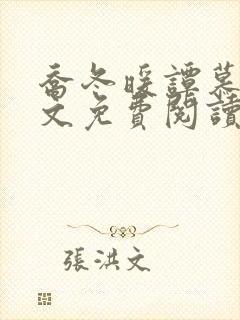 喬冬暖譚慕
文免費閱讀
張洪文